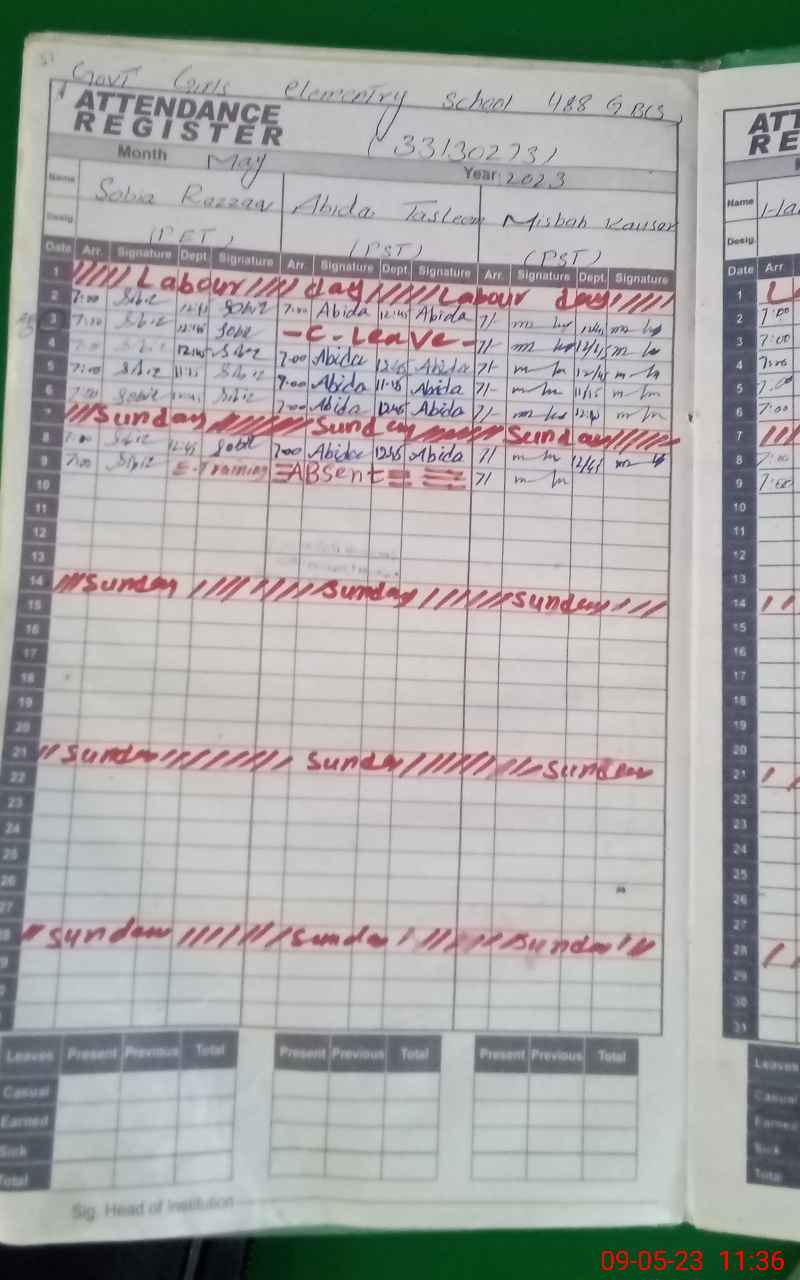 Govt Girls elementry School 488 GB(S)
ATTENDANCE
REGISTER
(33130273)
Month May Year 2023
Name Sobia Razzaq Abida Tasleem Misbah Kausar
Desig. (PET) (PST) (PST)
Date Arr. Signature Dept Signature Arr. Signature Dept. Signature Arr. Signature Dept. Signature
1 Labour day Labour day
2 7:00 12:45 7:00 Abida 12:45 Abida 7/-
3 7:00 12:45 - C. Leave - 7/- 12/45
4 12:45 7:00 Abida 12:45 Abida 7/- 12/45
5 7:00 11:15 7:00 Abida 11:15 Abida 7/- 11/15
6 7:00 7:00 Abida 12:45 Abida 7/-
7 Sunday Sunday Sunday
8 7:00 12:45 7:00 Abida 12:45 Abida 7/- 12/45
9 7:00 E-Training Absent 7/-
10
11
12
13
14 Sunday Sunday Sunday
15
16
17
18
19
20
21 Sunday Sunday Sunday
22
23
24
25
26
27
28 Sunday Sunday Sunday
Leaves Present Previous Total Present Previous Total Present Previous Total
Casual
Earned
Sick
Total
Sig. Head of Institution
ATT
RE
Name
Desig.
Date Arr
1 L
2 7:00
3 7:00
4 7:00
5 7:00
6 7:00
7
8 7:00
9 7:00
10
11
12
13
14
15
16
17
18
19
20
21
22
23
24
25
26
27
28
29
30
31
Leaves
Casual
Earned
Sick
Total
09-05-23 11:36